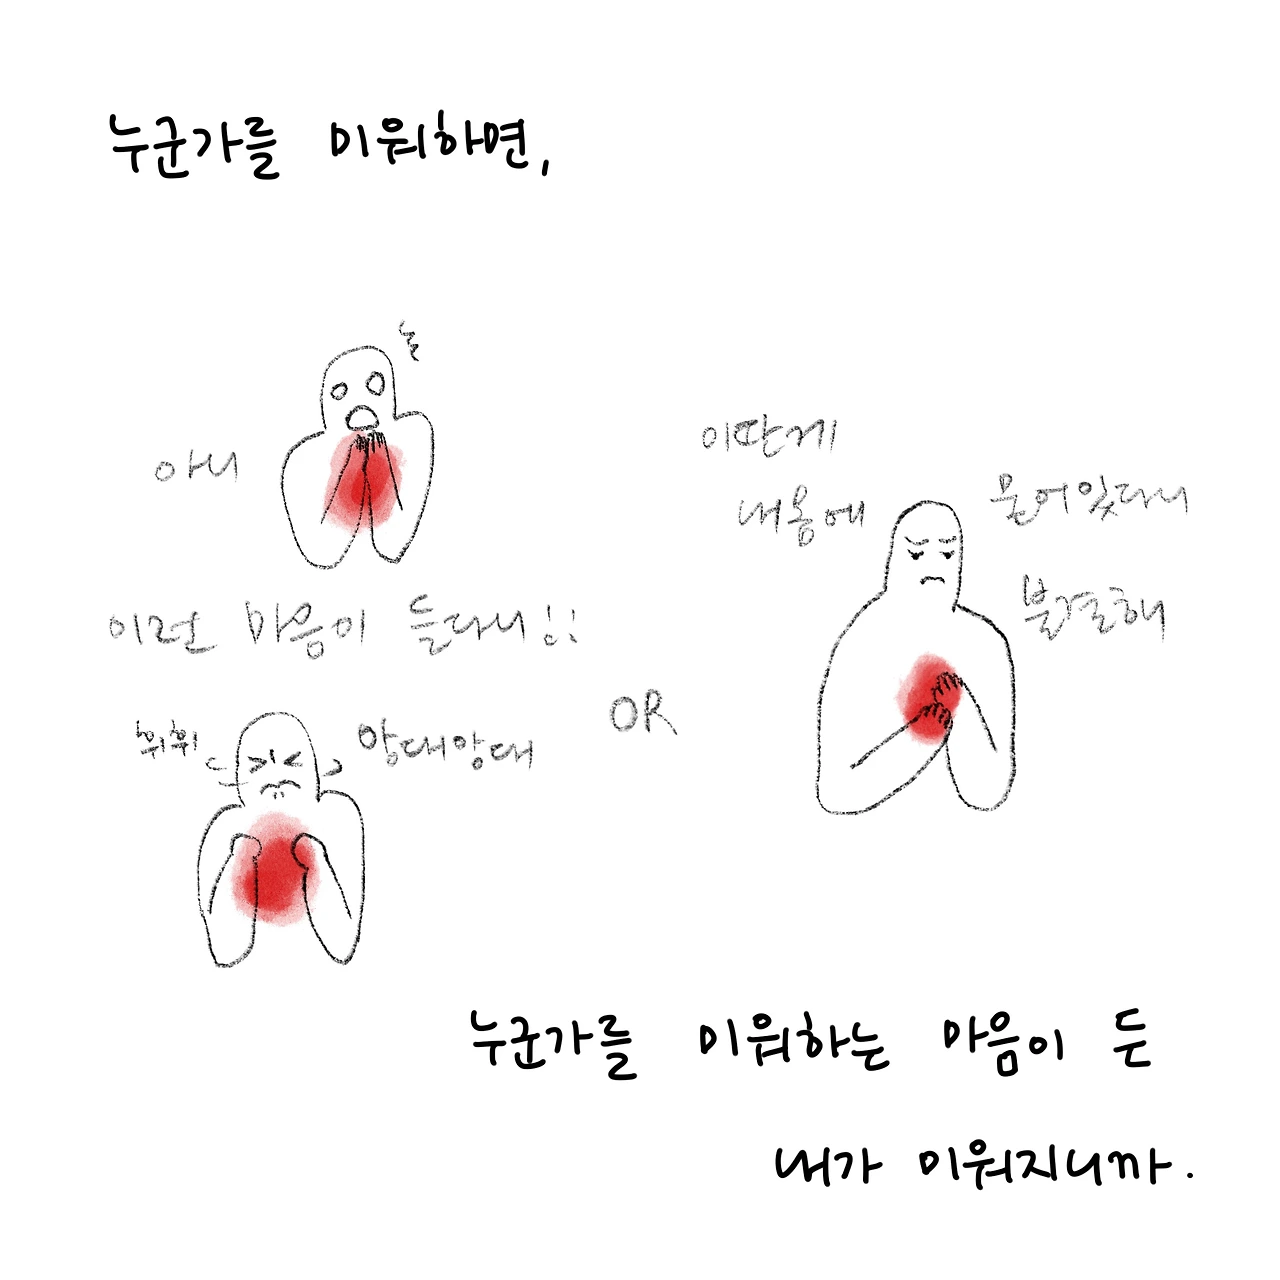 누군가를 미워하면,
눌
아니
이런 마음이 들다니!!
휘휘
앙대앙대
OR
이딴게
내몸에
묻어있다니
불결해
누군가를 미워하는 마음이 든
내가 미워지니까.